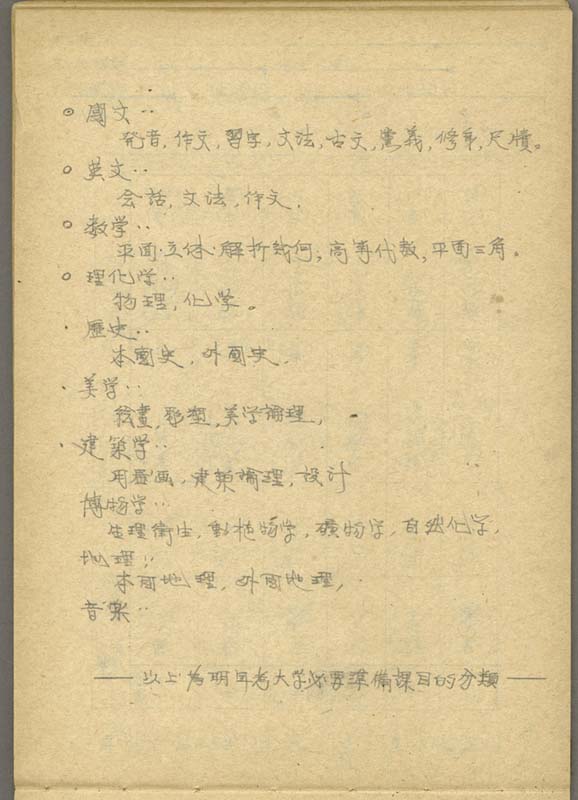 ◎ 國文‥
発音, 作文, 習字, 文法, 古文, 講義, 修辞, 尺牘。
○ 英文‥
会話, 文法, 作文.
○ 数学‥
平面·立体·解析幾何, 高等代数, 平面三角。
○ 理化学‥
物理, 化学。
· 歷史‥
本國史, 外国史.
· 美学‥
絵畫, 彫塑, 美学論理,
· 建築学‥
用器画, 建築論理, 設計
博物学‥
生理衛生, 動植物学, 礦物学, 自然化学,
地理‥
本国地理, 外国地理,
音楽‥
—— 以上為明年考大学必要準備課目的分類 ——